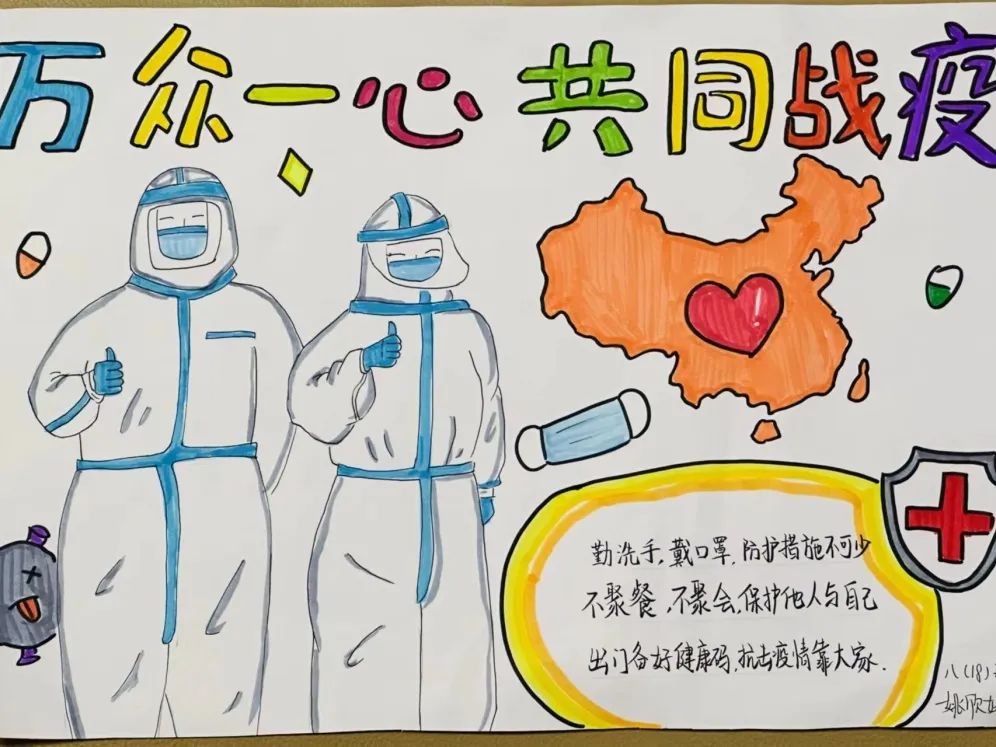 万众一心 共同战疫
勤洗手，戴口罩，防护措施不可少
不聚餐，不聚会，保护他人与自己
出门备好健康码，抗击疫情靠大家．
八（18）
姚欣